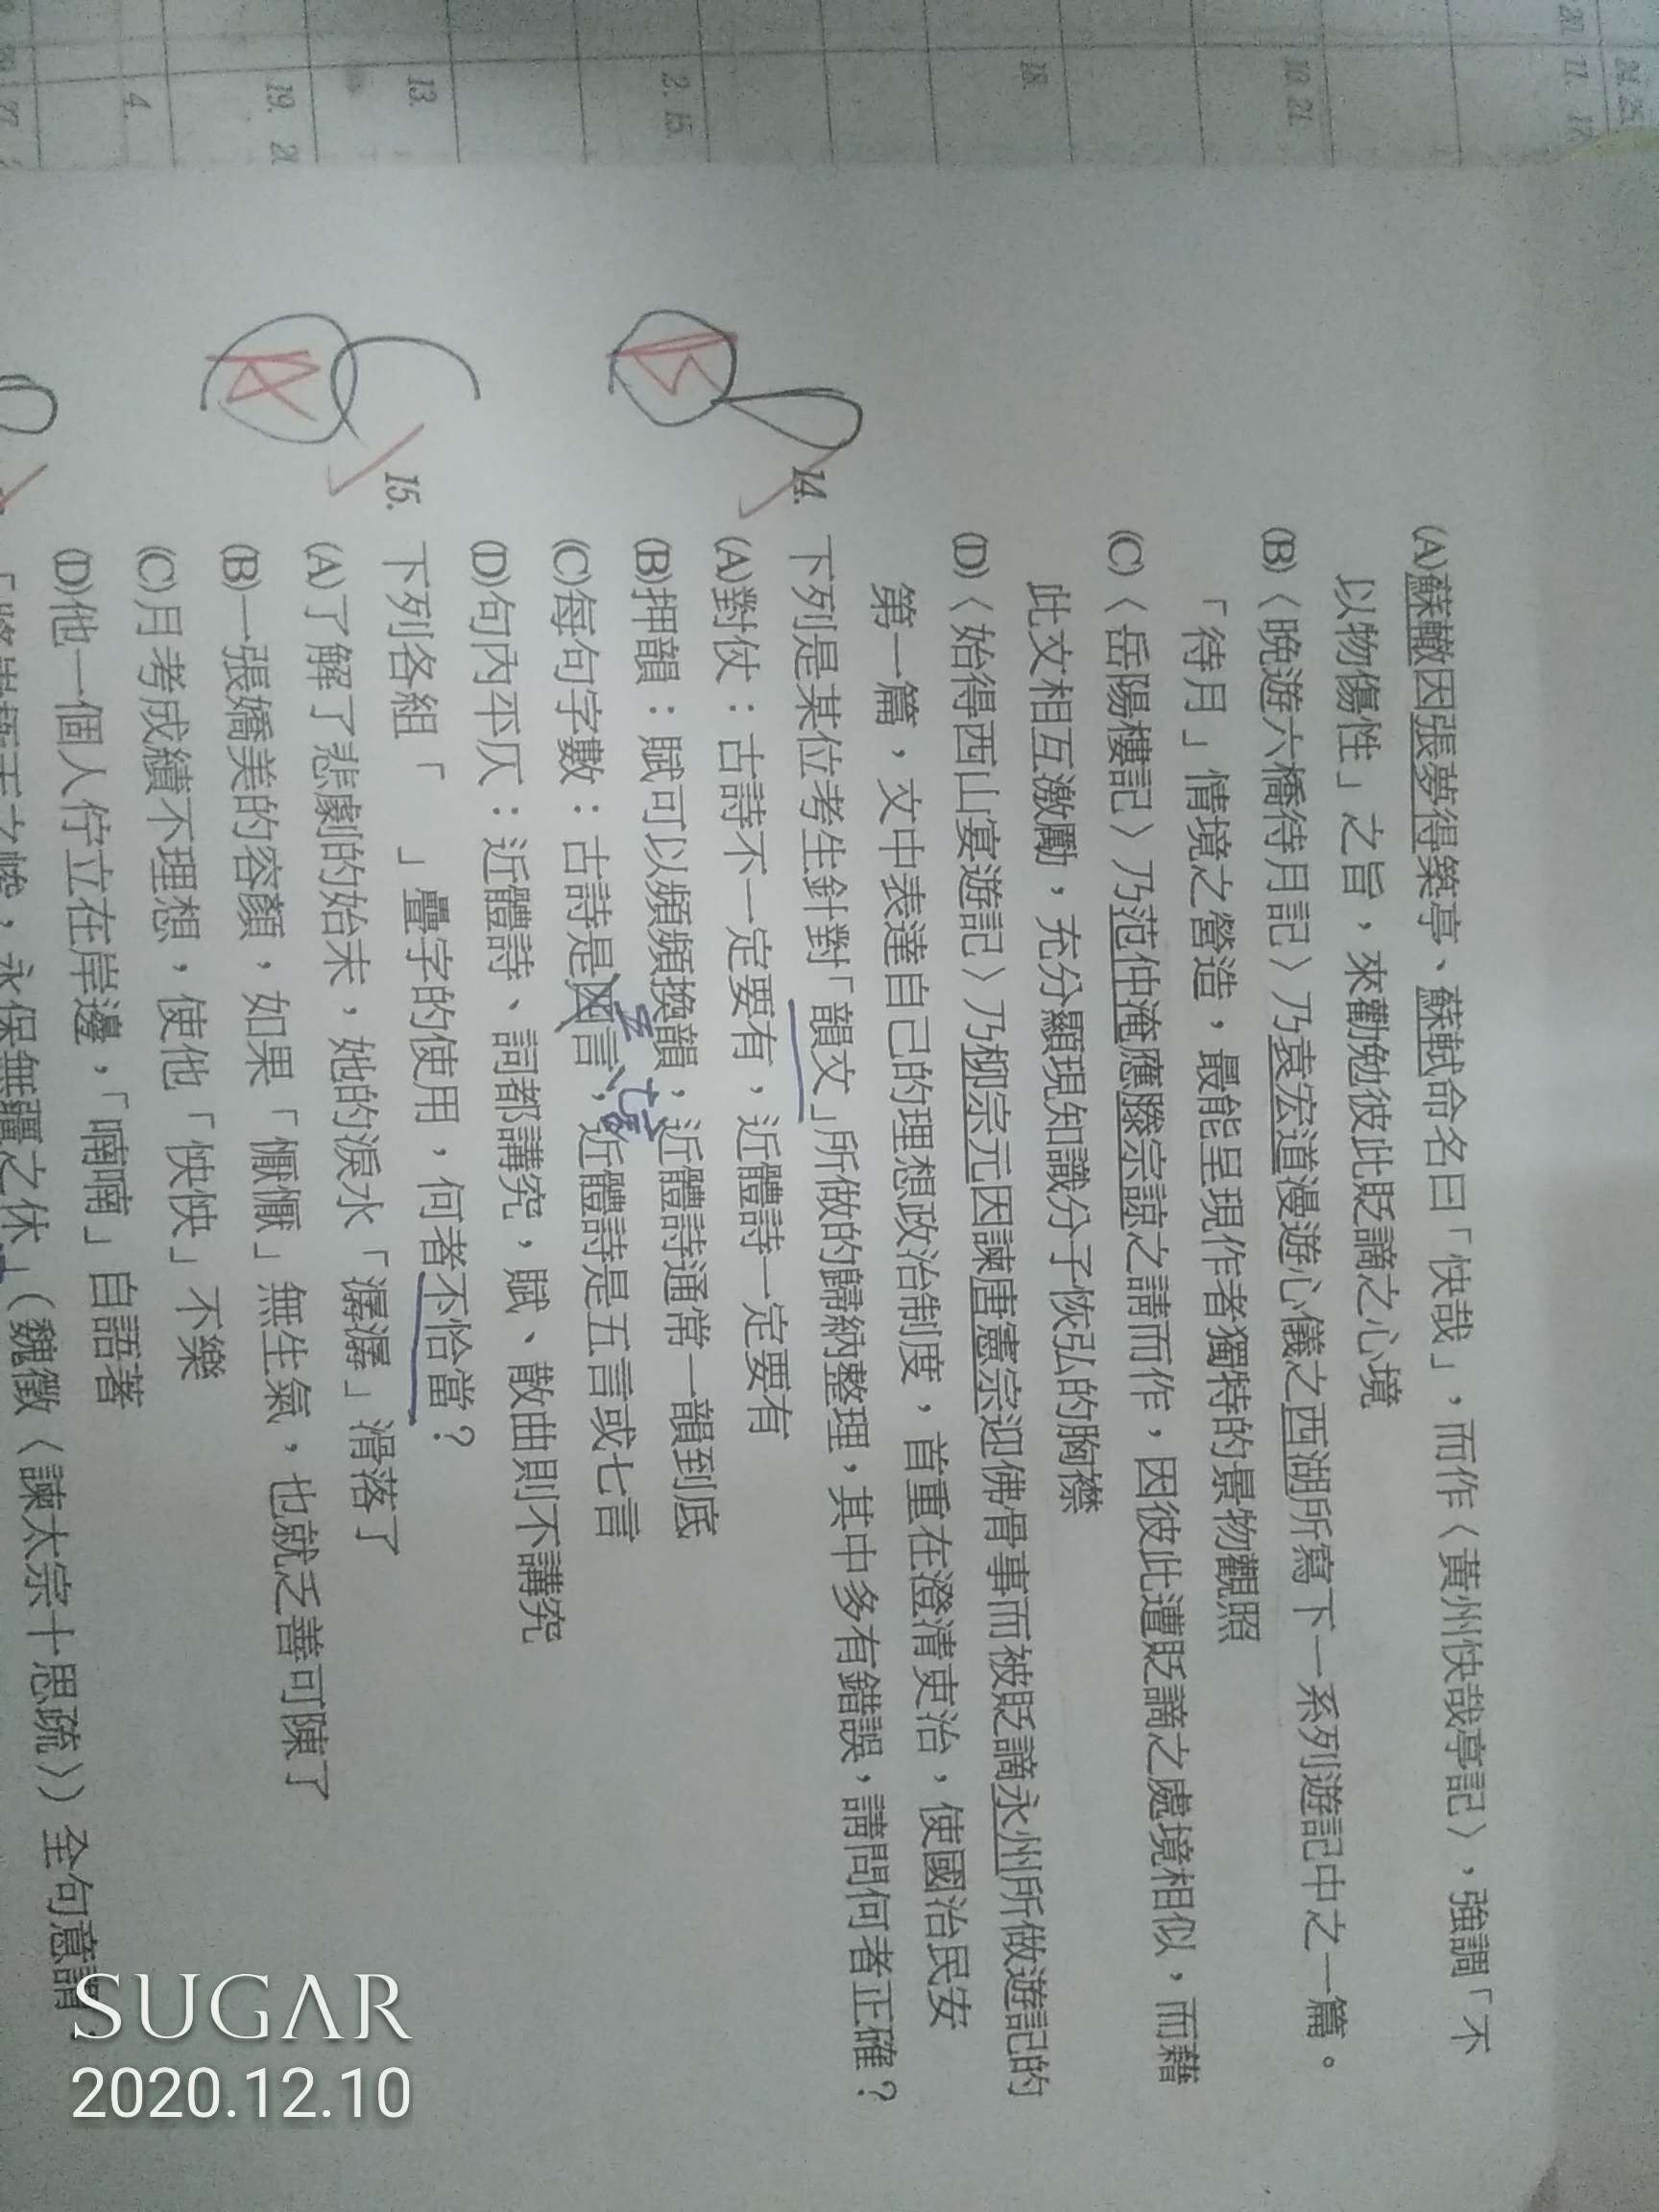 24. 25.
20. 11. 17.
10. 21.
18.
2. 15.
13.
19.
4.
27.
(A)蘇轍因張夢得築亭、蘇軾命名曰「快哉」，而作〈黃州快哉亭記〉，強調「不
以物傷性」之旨，來勸勉彼此貶謫之心境
(B)〈晚遊六橋待月記〉乃袁宏道漫遊心儀之西湖所寫下一系列遊記中之一篇。
「待月」情境之營造，最能呈現作者獨特的景物觀照
(C)〈岳陽樓記〉乃范仲淹應滕宗諒之請而作，因彼此遭貶謫之處境相似，而藉
此文相互激勵，充分顯現知識分子恢弘的胸襟
(D)〈始得西山宴遊記〉乃柳宗元因諫唐憲宗迎佛骨事而被貶謫永州所做遊記的
第一篇，文中表達自己的理想政治制度，首重在澄清吏治，使國治民安
B
14. 下列是某位考生針對「韻文」所做的歸納整理，其中多有錯誤，請問何者正確？
(A)對仗：古詩不一定要有，近體詩一定要有
(B)押韻：賦可以頻頻換韻，近體詩通常一韻到底
五、七言
(C)每句字數：古詩是四言，近體詩是五言或七言
(D)句內平仄：近體詩、詞都講究，賦、散曲則不講究
A
15. 下列各組「　」疊字的使用，何者不恰當？
(A)了解了悲劇的始末，她的淚水「潺潺」滑落了
(B)一張嬌美的容顏，如果「懨懨」無生氣，也就乏善可陳了
(C)月考成績不理想，使他「怏怏」不樂
(D)他一個人佇立在岸邊，「喃喃」自語著
永保無疆之休」（魏徵〈諫太宗十思疏〉）全句意謂：
SUGAR
2020.12.10